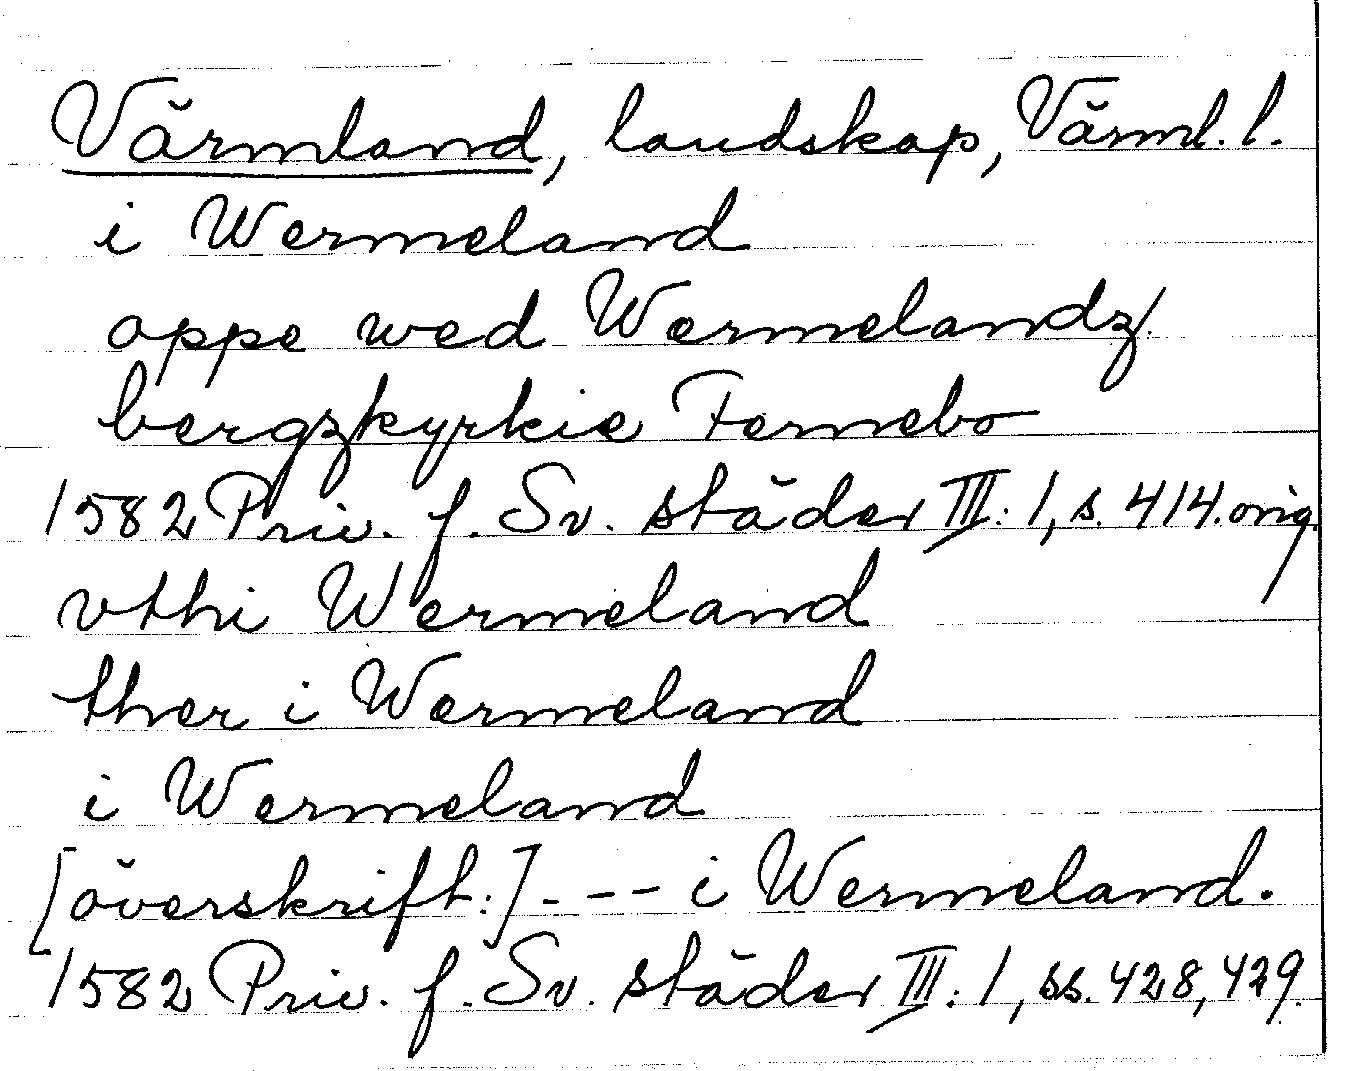 Värmland, landskap, Värml. l.
i Wermeland
oppe wed Wermelandz
bergzkyrkie Fernebo
1582 Priv. f. Sv. städer III: 1, s. 414. orig.
vthi Wermeland
ther i Wermeland
i Wermeland
[överskrift:] --- i Wermeland.
1582 Priv. f. Sv. städer III: 1, ss. 428, 429.